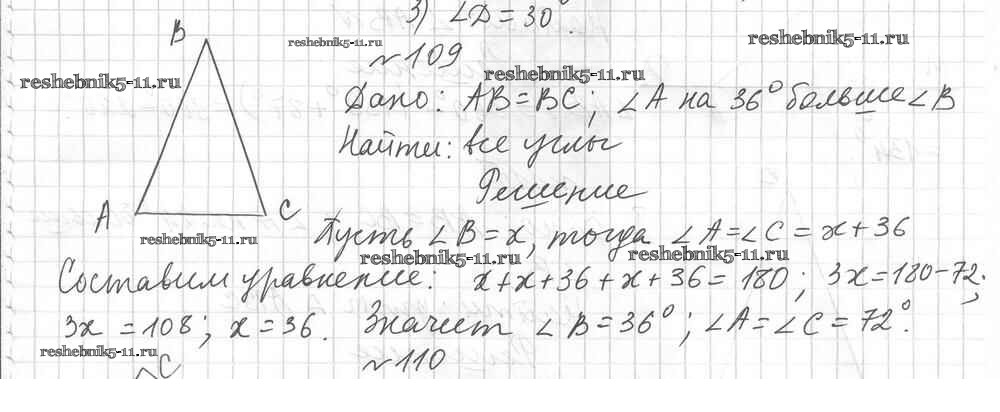 3) ∠D = 30°.
№109
Дано: AB = BC; ∠A на 36° больше ∠B
Найти: все углы
Решение
B
A
C
Пусть ∠B = x, тогда ∠A = ∠C = x + 36
Составим уравнение. x + x + 36 + x + 36 = 180; 3x = 180 - 72;
3x = 108; x = 36. Значит ∠B = 36°; ∠A = ∠C = 72°.
№110
C
reshebnik5-11.ru
reshebnik5-11.ru
reshebnik5-11.ru
reshebnik5-11.ru
reshebnik5-11.ru
reshebnik5-11.ru
reshebnik5-11.ru
reshebnik5-11.ru